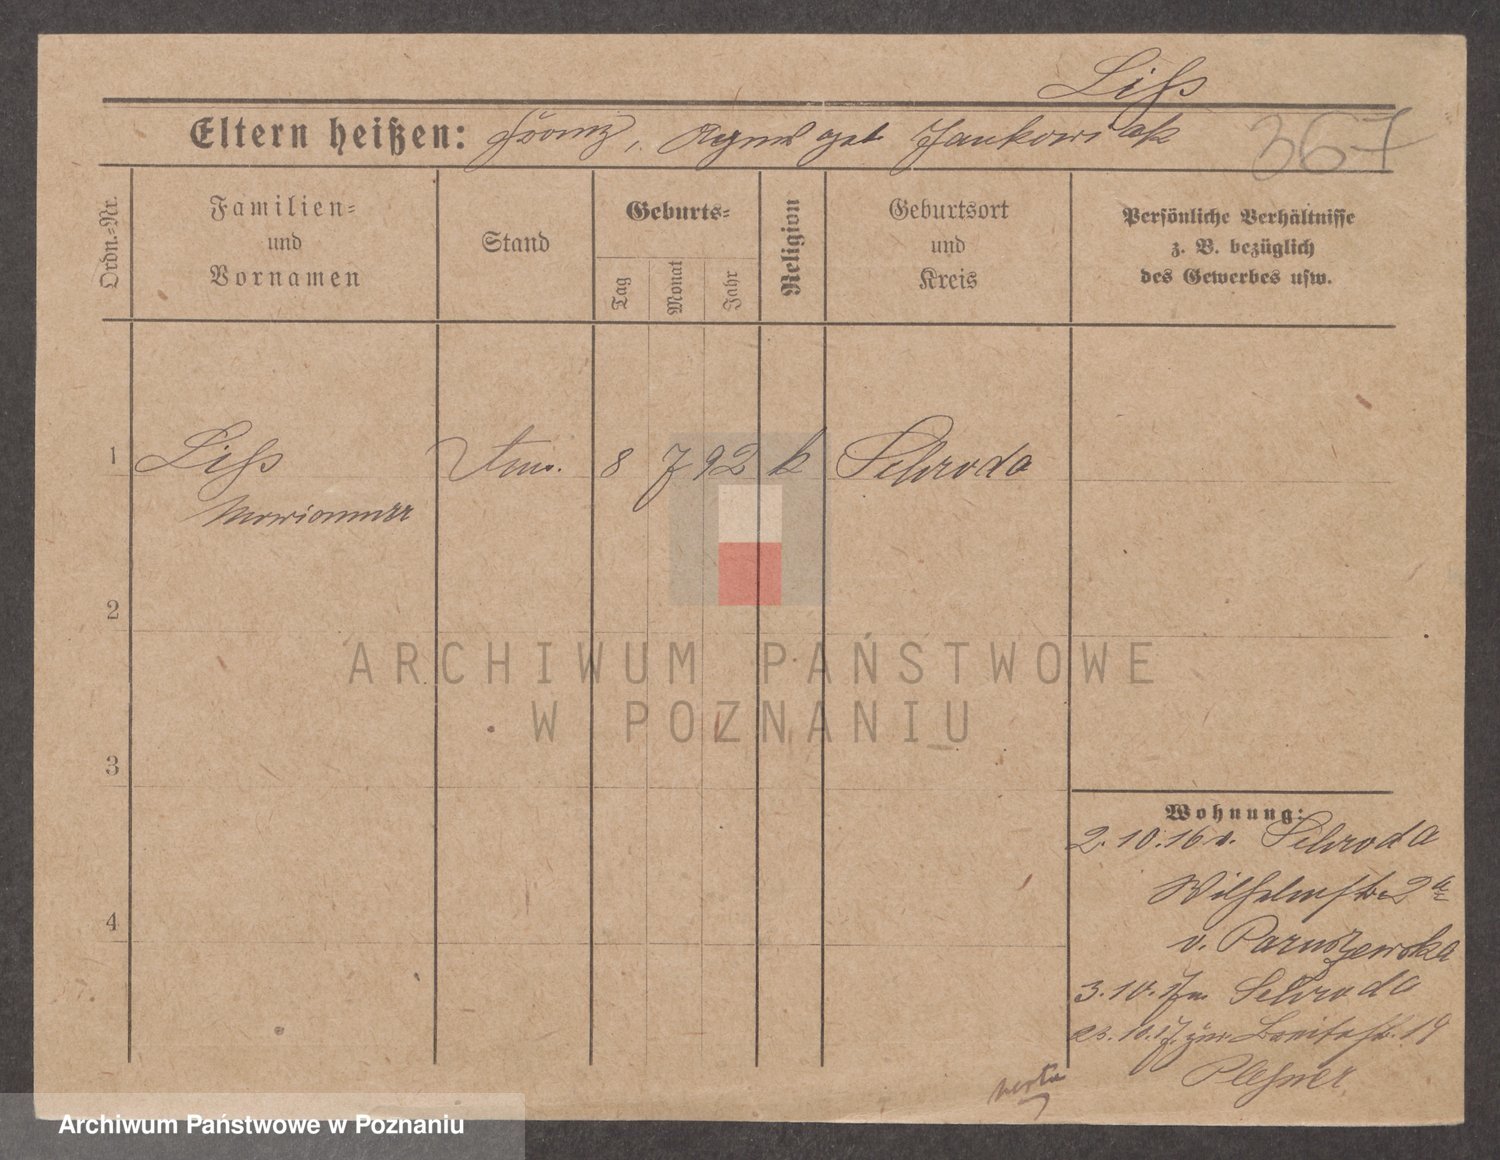 Liss
Eltern heißen: Franz, Agnes geb. Jankowiak
367
Ordn.=Nr.
Familien=
und
Vornamen
Stand
Geburts=
Tag
Monat
Jahr
Religion
Geburtsort
und
Kreis
Persönliche Verhältnisse
z. B. bezüglich
des Gewerbes usw.
1 Liss 8 7 92 k Schroda
Marianna
2
ARCHIWUM PAŃSTWOWE
W POZNANIU
3
Wohnung:
2.10.16 v. Schroda
Wilhelmstr. 2
4
v. Paruszewska
3.10.17 n. Schroda
23.10.17 zur. Breitestr. 19
Plessner
Archiwum Państwowe w Poznaniu